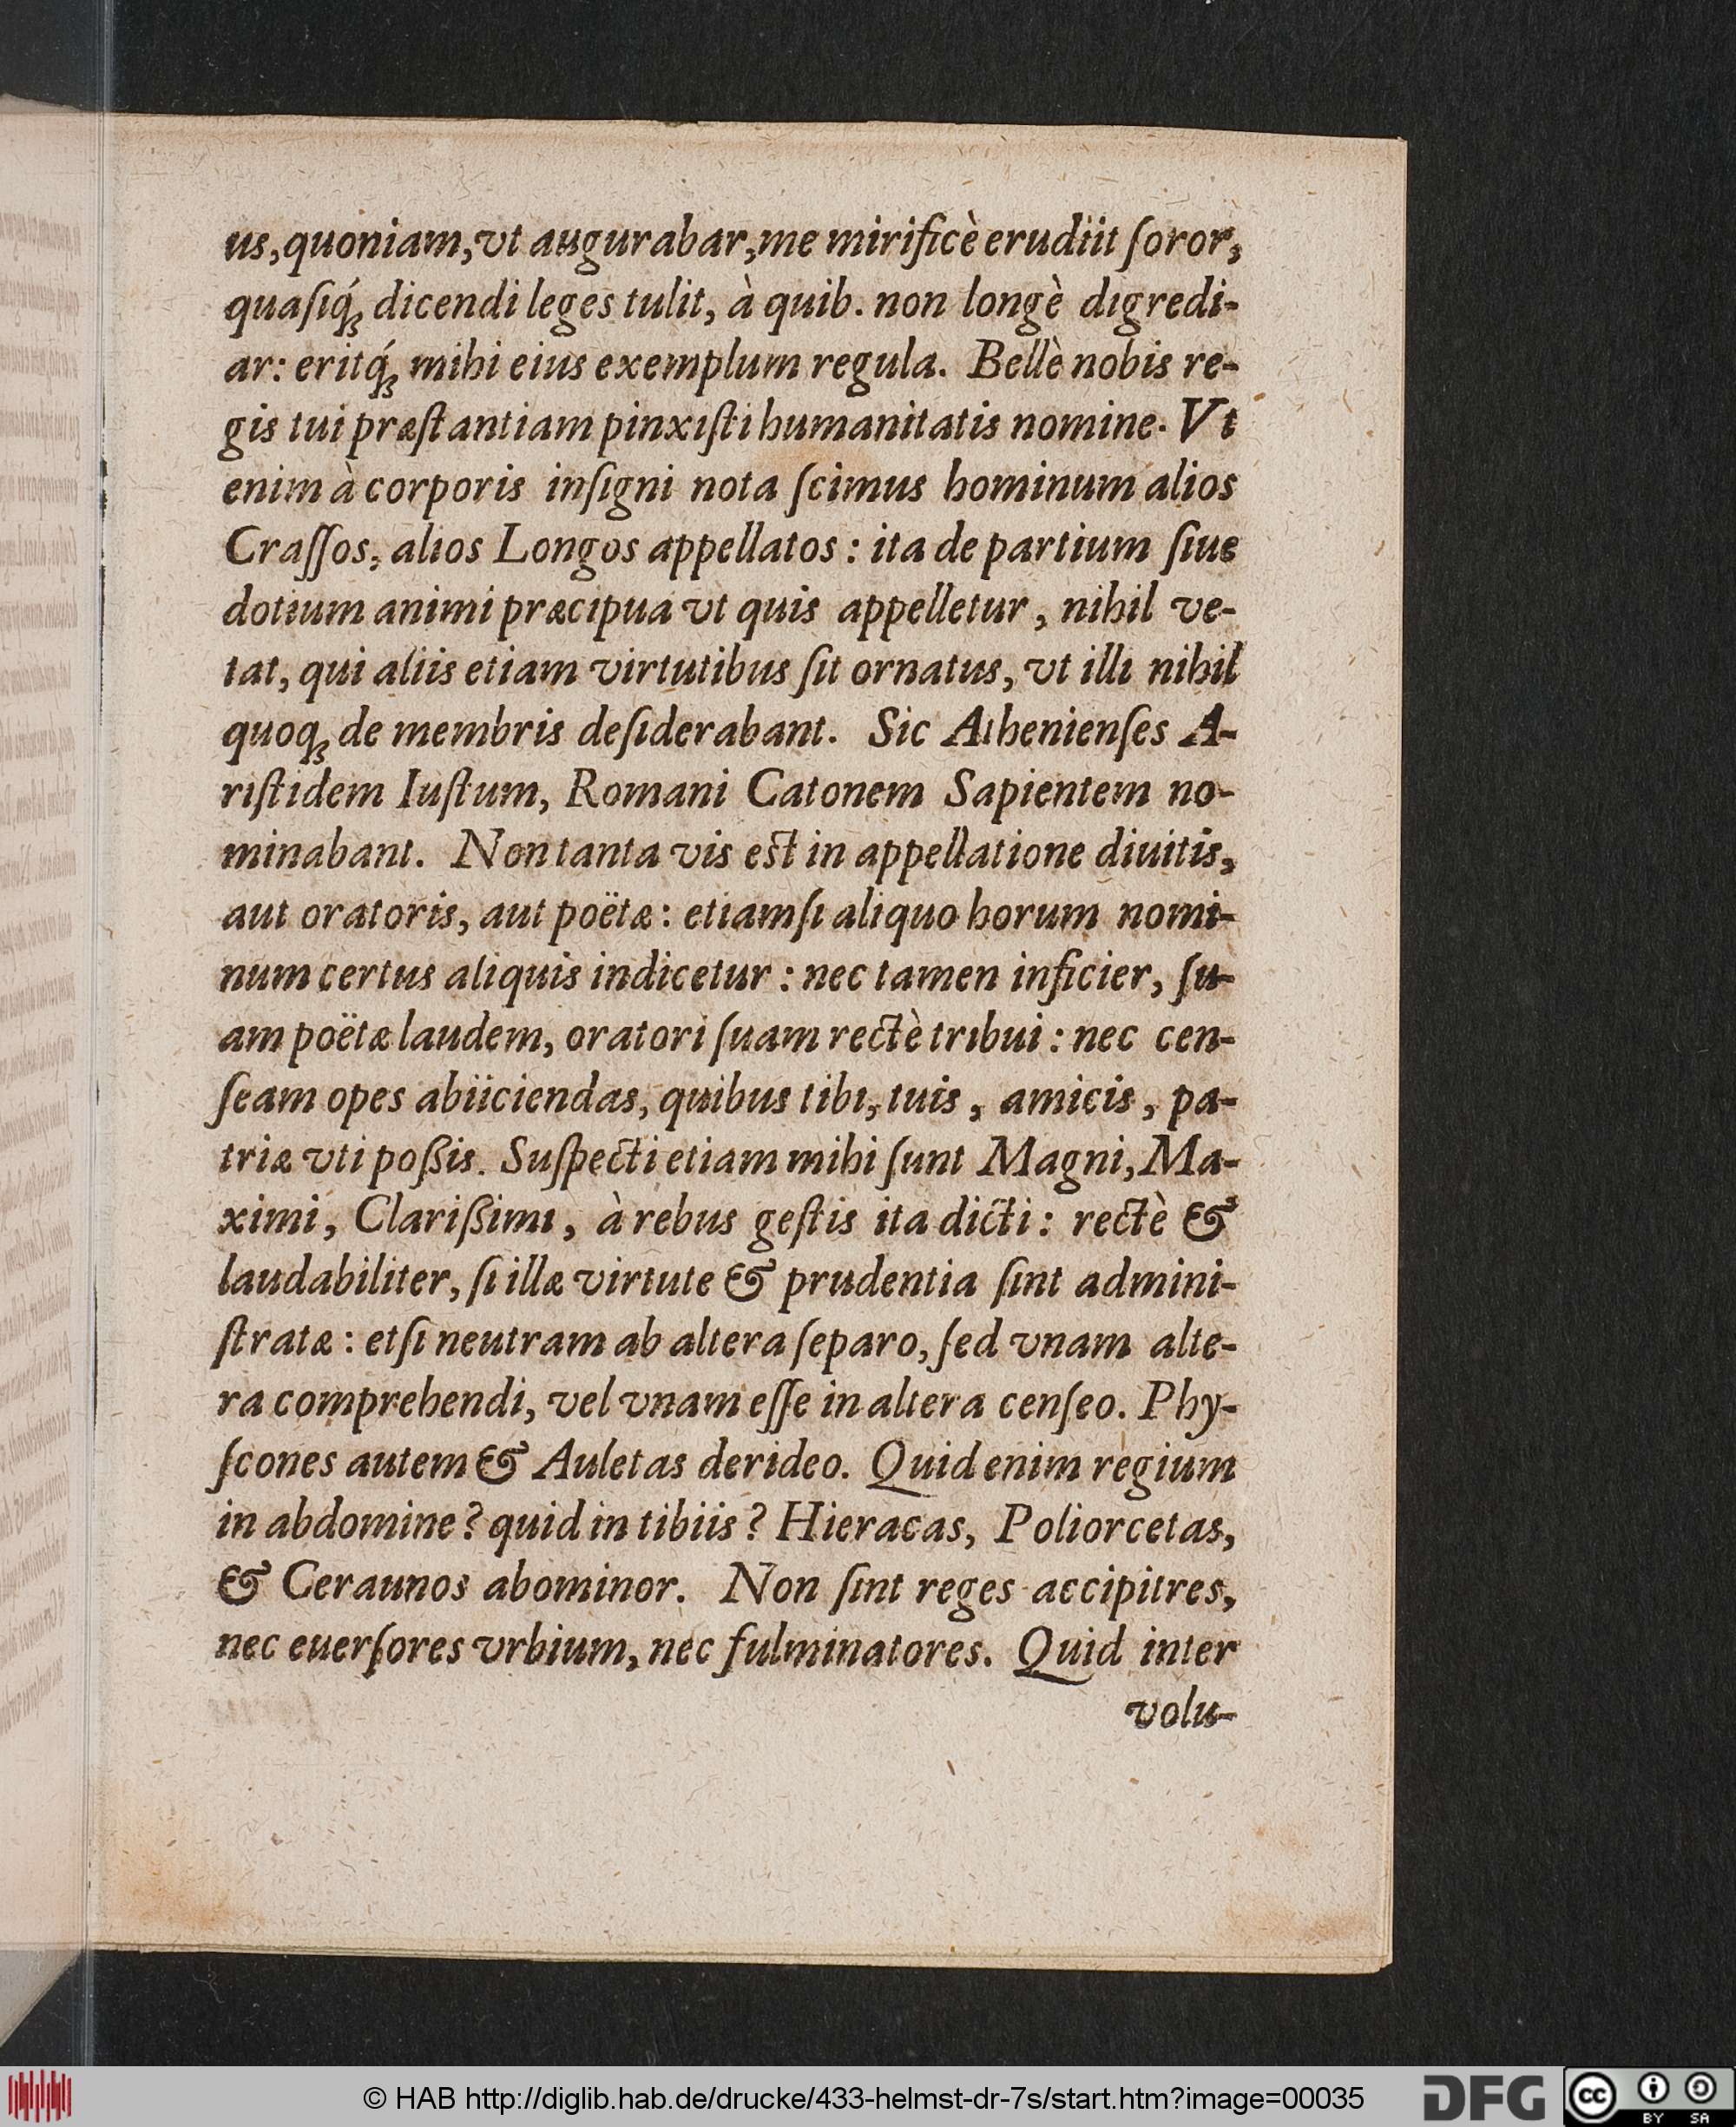 us, quoniam, vt augurabar, me mirificè erudiit ſoror,
quaſiq́; dicendi leges tulit, à quib. non longè digredi-
ar: eritq́; mihi eius exemplum regula. Bellè nobis re-
gis tui præſtantiam pinxiſti humanitatis nomine. Vt
enim à corporis inſigni nota ſcimus hominum alios
Craſſos, alios Longos appellatos : ita de partium ſiue
dotium animi præcipua vt quis appelletur, nihil ve-
tat, qui aliis etiam virtutibus ſit ornatus, vt illi nihil
quoq; de membris deſiderabant. Sic Athenienſes A-
riſtidem Iuſtum, Romani Catonem Sapientem no-
minabant. Non tanta vis est in appellatione diuitis,
aut oratoris, aut poëtæ : etiamſi aliquo horum nomi-
num certus aliquis indicetur : nec tamen inficier, ſu-
am poëtæ laudem, oratori ſuam rectè tribui : nec cen-
ſeam opes abiiciendas, quibus tibi, tuis, amicis, pa-
triæ vti poßis. Suſpecti etiam mihi ſunt Magni, Ma-
ximi, Clarißimi, à rebus geſtis ita dicti : rectè &
laudabiliter, ſi illæ virtute & prudentia ſint admini-
ſtratæ : etſi neutram ab altera ſeparo, ſed vnam alte-
ra comprehendi, vel vnam eſſe in altera cenſeo. Phy-
ſcones autem & Auletas derideo. Quid enim regium
in abdomine ? quid in tibiis ? Hieracas, Poliorcetas,
& Ceraunos abominor. Non ſint reges accipitres,
nec euerſores vrbium, nec fulminatores. Quid inter
volu-
© HAB http://diglib.hab.de/drucke/433-helmst-dr-7s/start.htm?image=00035
DFG
cc BY SA